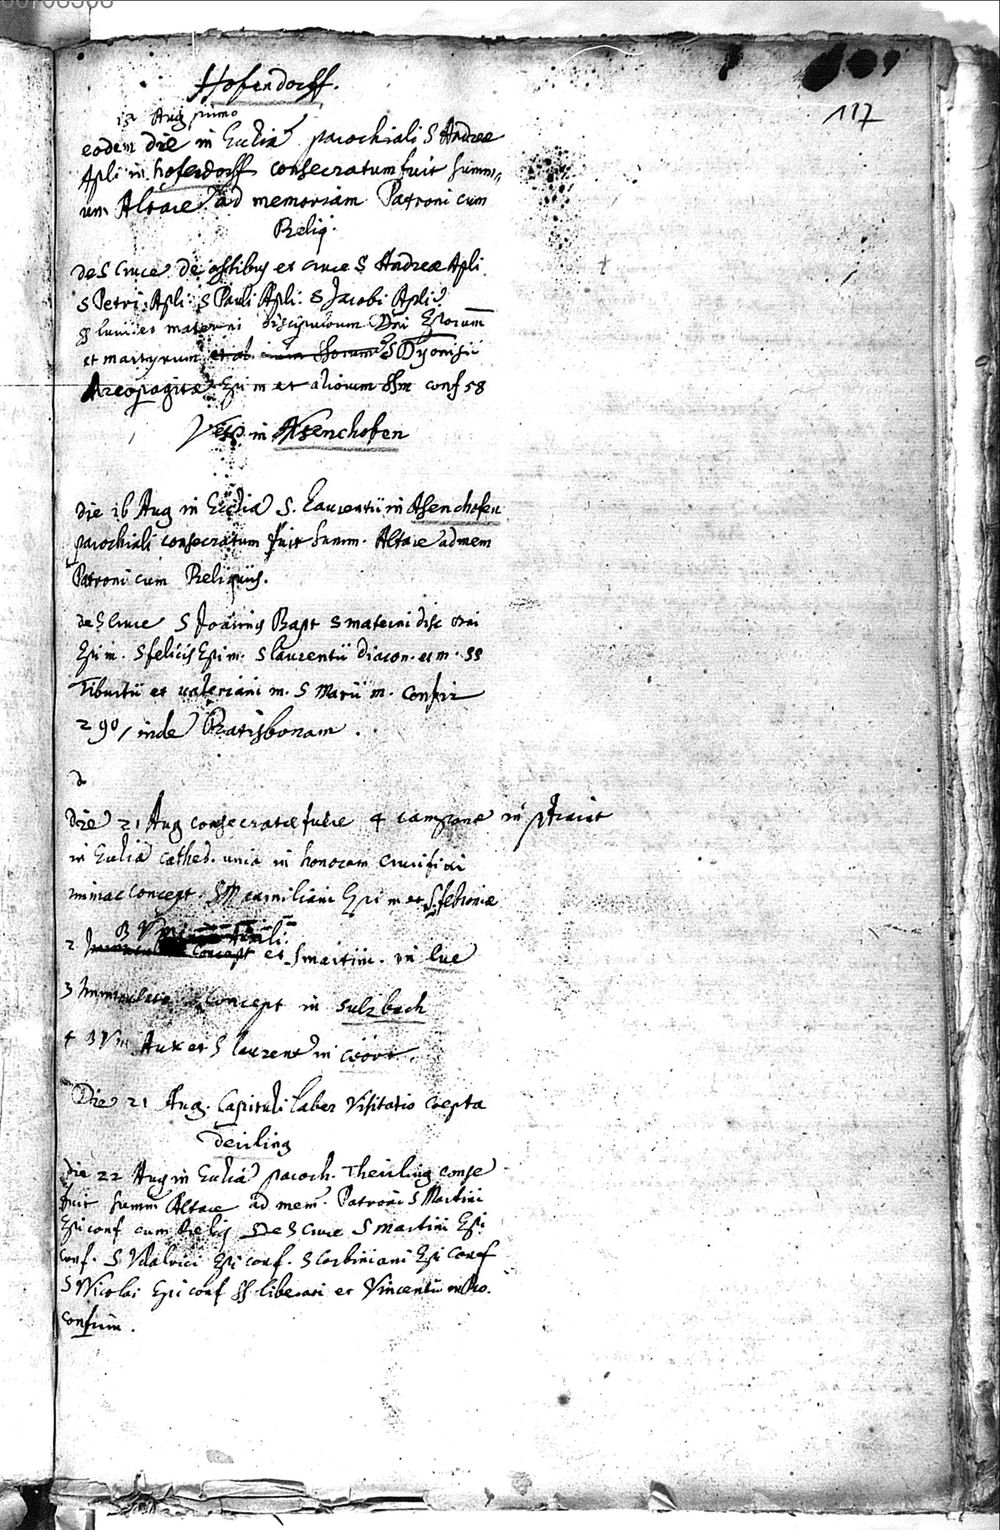 117
Hofendorff.
12 Aug primo
eodem die in Ecclia parochiali S Andreæ
Apli in hofendorff consecratum fuit summ
um Altare ad memoriam Patroni cum
Reliq.
de S Cruce de ossibus et cruce S Andreæ Apli
S Petri Apli S Pauli Apli. S Jacobi Apli
materni discipulorum Dni Eporum
et martyrum S Dyonisii
Areopagitæ Epi m et aliorum SSm conf 58
Vesp in Asenchofen
die 16 Aug in Ecclia S. Laurentii in Asenchofen
parochiali consecratum fuit summ. Altare ad mem
Patroni cum Reliquiis.
de S Cruce S Joannis Bapt S materni disc Dni
Epi m. S felicis Epi m. S laurentii diacon. et m. SS
Tiburtii et valeriani m. S Marii m. confir
290, inde Ratisbonam.
Die 21 Aug consecratæ fuere 4 campanæ in
in Ecclia cathed. una in honorem crucifixi
concept. et S febroniæ
2 B V concept et S martini. in lue
3 Immaculatæ concept in Sulzbach
4 B V M Aux et S laurent in
Die 21 Aug. Capituli laber Visitatio coepta
deiiling
die 22 Aug in Ecclia paroch. Theiiling conse
fuit summ Altare ad mem. Patroni S Martini
Epi conf cum Reliq de S Cruce S martini Epi
Conf. S Vdalrici Epi conf. S Corbiniani Epi Conf
S Nicolai Epi conf SS liberati et Vincentii m Ro.